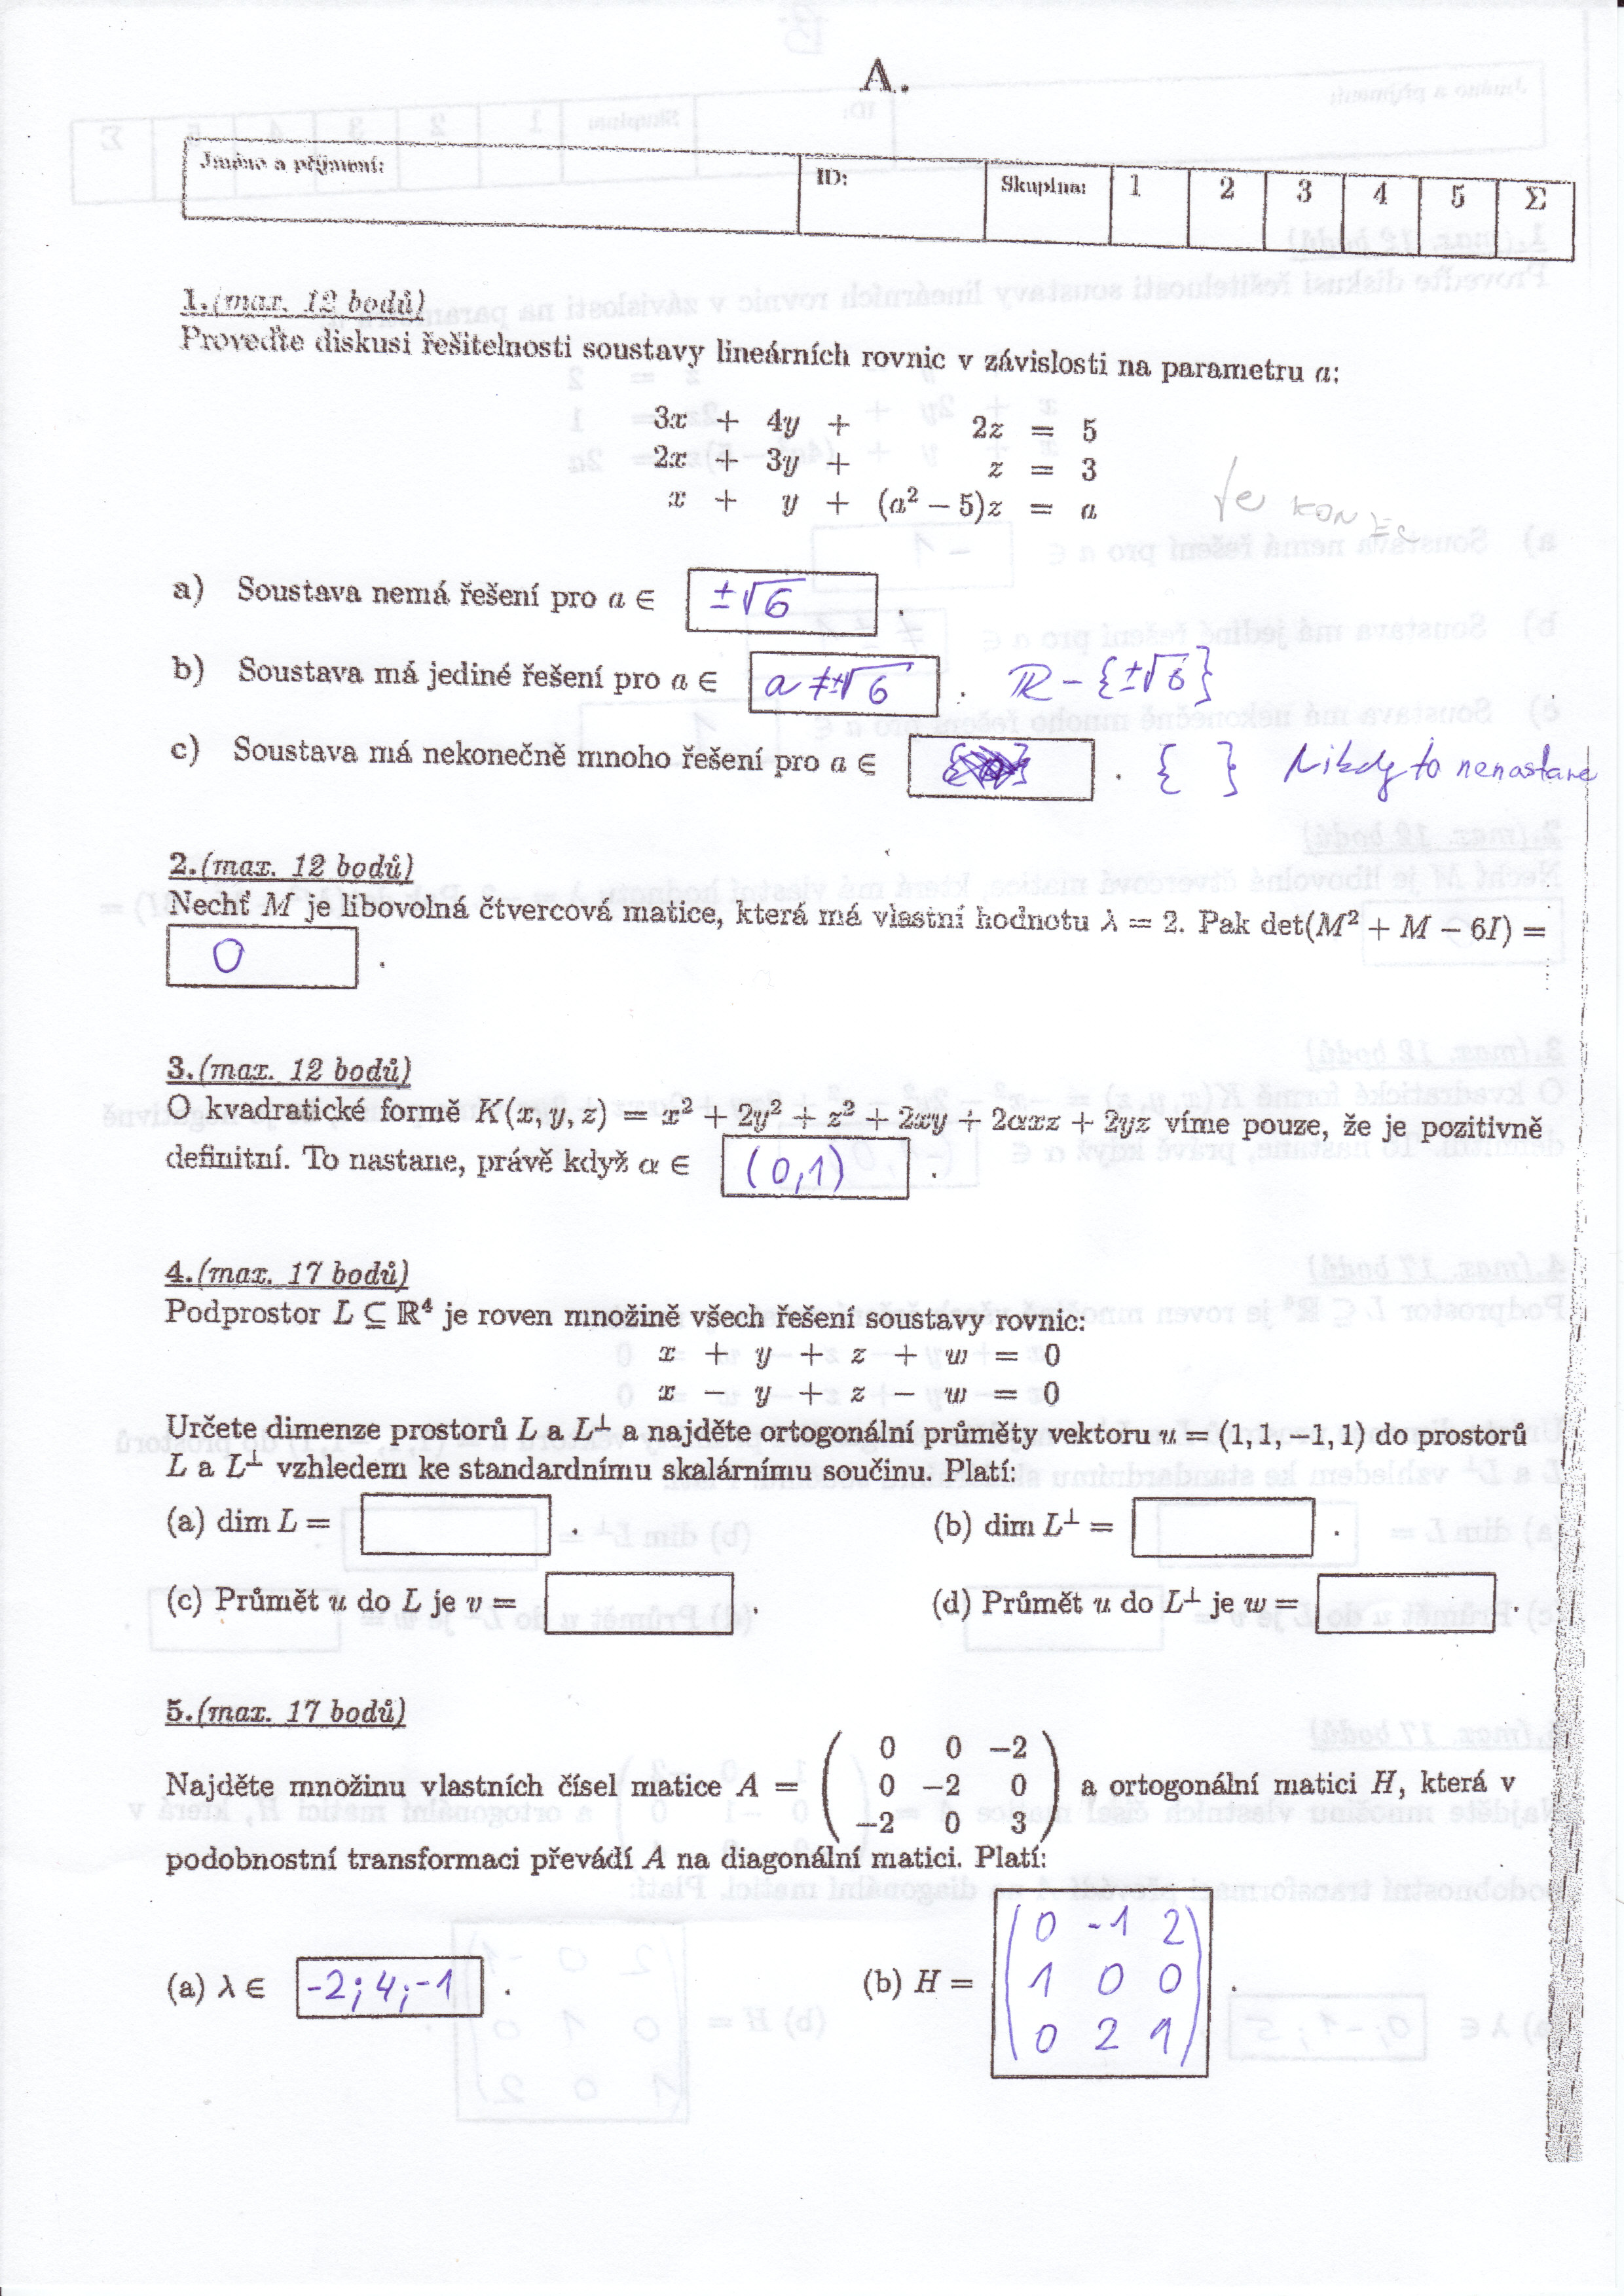 A.
Jméno a příjmení: ID: Skupina: 1 2 3 4 5 Σ
1.(max. 12 bodů)
Proveďte diskusi řešitelnosti soustavy lineárních rovnic v závislosti na parametru a:
3x + 4y + 2z = 5
2x + 3y + z = 3
x + y + (a² − 5)z = a
a) Soustava nemá řešení pro a ∈ ±√6 .
b) Soustava má jediné řešení pro a ∈ a ≠ ±√6 . R − {±√6}
c) Soustava má nekonečně mnoho řešení pro a ∈ . { } Nikdy to nenastane
2.(max. 12 bodů)
Nechť M je libovolná čtvercová matice, která má vlastní hodnotu λ = 2. Pak det(M² + M − 6I) =
0 .
3.(max. 12 bodů)
O kvadratické formě K(x, y, z) = x² + 2y² + z² + 2xy + 2αxz + 2yz víme pouze, že je pozitivně
definitní. To nastane, právě když α ∈ (0,1) .
4.(max. 17 bodů)
Podprostor L ⊆ ℝ⁴ je roven množině všech řešení soustavy rovnic:
x + y + z + w = 0
x − y + z − w = 0
Určete dimenze prostorů L a L⊥ a najděte ortogonální průměty vektoru u = (1, 1, −1, 1) do prostorů
L a L⊥ vzhledem ke standardnímu skalárnímu součinu. Platí:
(a) dim L = . (b) dim L⊥ = .
(c) Průmět u do L je v = . (d) Průmět u do L⊥ je w = .
5.(max. 17 bodů)
0 0 −2
Najděte množinu vlastních čísel matice A = ( 0 −2 0 ) a ortogonální matici H, která v
−2 0 3
podobnostní transformaci převádí A na diagonální matici. Platí:
0 -1 2
(a) λ ∈ -2; 4; -1 . (b) H = ( 1 0 0 ) .
0 2 1